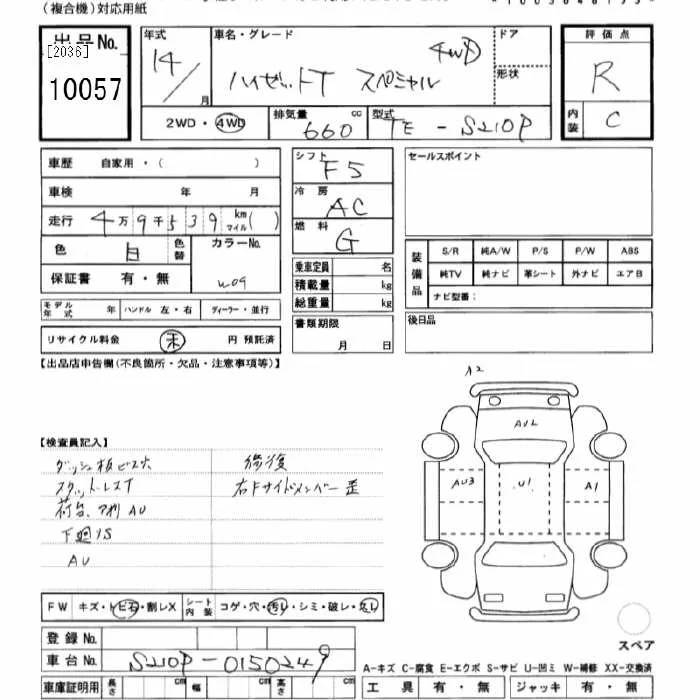 (複合機)対応用紙
出品No.
[2036]
10057
年式 14/ 月
車名・グレード ハイゼットT スペシャル 4WD
ドア
形状
評価点 R
内装 C
2WD・4WD
排気量 660 cc
型式 TE-S210P
車歴 自家用・( )
シフト F5
セールスポイント
車検 年 月
冷房 AC
走行 4万9千539 km マイル( )
燃料 G
色 白 色替 カラーNo. W09
保証書 有・無
乗車定員 名
積載量 kg
総重量 kg
装備品
S/R 純A/W P/S P/W ABS
純TV 純ナビ 革シート 外ナビ エアB
ナビ型番:
モデル年式 年 ハンドル 左・右 ディーラー・並行
書類期限 月 日
後日品
リサイクル料金 未 円 預託済
【出品店申告欄(不良箇所・欠品・注意事項等)】
A2
AU2
AU3 U1 A1
【検査員記入】
ダッシュ板ビス穴 修復
スタットレスT 右Fサイドメンバー歪
荷台、アオリAU
下廻りS
AU
FW キズ・トビ石・割レX シート内装 コゲ・穴・汚レ・シミ・破レ・欠レ
登録No.
車台No. S210P-0150249
スペア
A-キズ C-腐食 E-エクボ S-サビ U-凹ミ W-補修 XX-交換済
車庫証明用 長さ cm 幅 cm 高さ cm
工具 有・無 ジャッキ 有・無